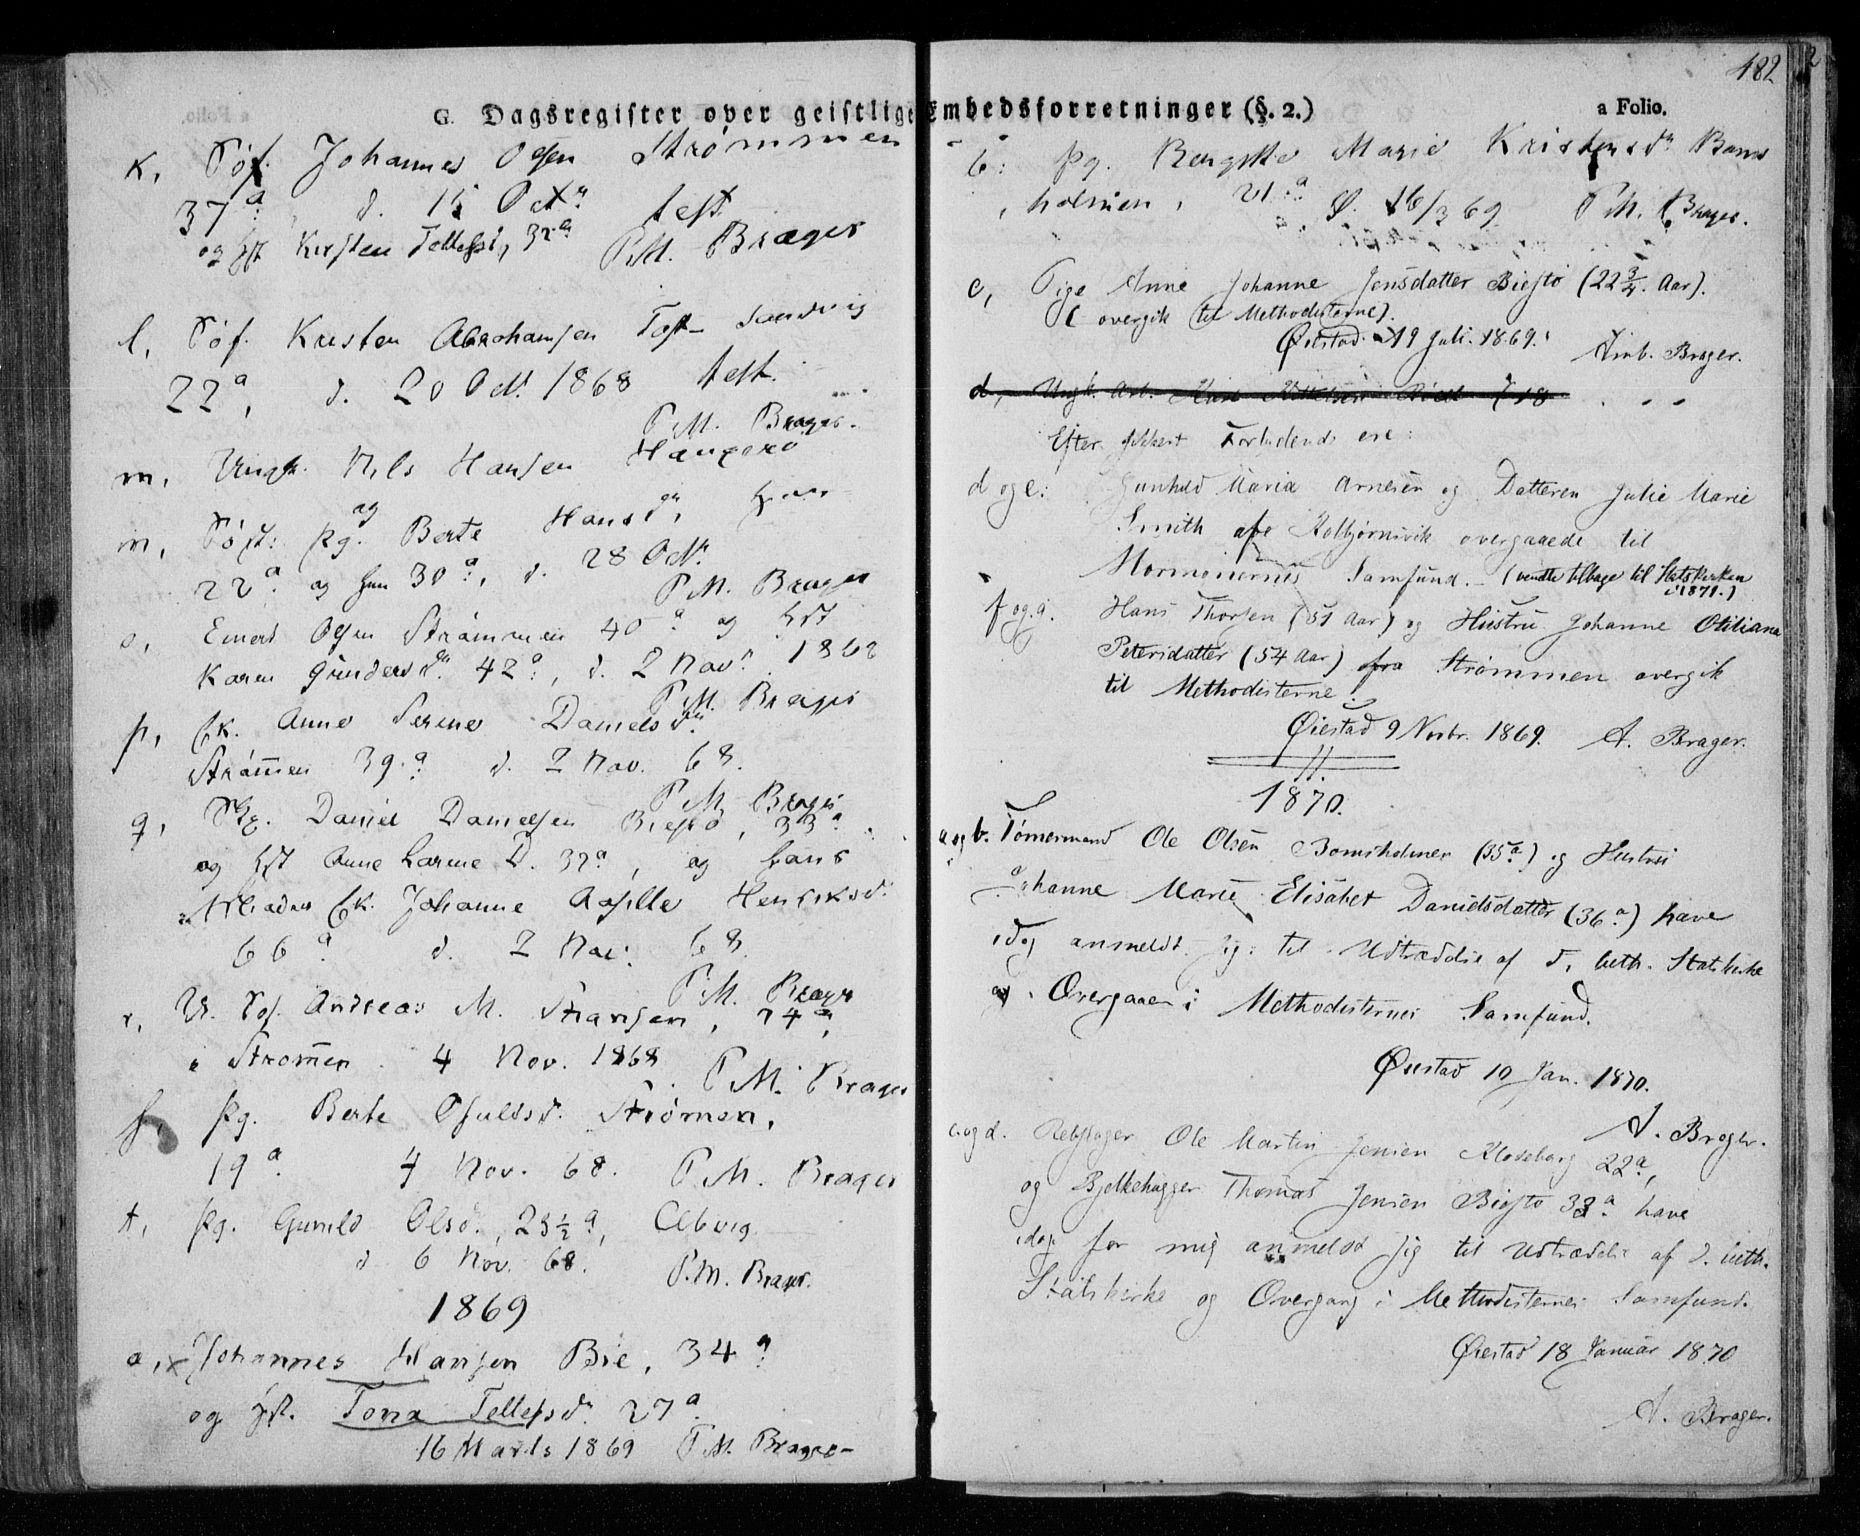 482
G. Dagsregister over geistlige Embedsforretninger (§. 2.) a Folio.
k, Søf. Johannes Olsen Strømmen
37 a: d. 15 Octr test
og Hst Kirsten Tellefsd, 32 a P.M. Brager
l, Søf. Kristen Abrahamsen Sandvig
22 a, d. 20 Octr 1868 test.
P.M. Brager.
m, Ungk. Nils Hansen
og
n, pg. Berte Hansdr,
22 a og hun 30 a:, d. 28 Octr
P.M. Brager
o, Einert Olsen Strømmen 40 a og Hst
Karen Gundersdr. 42 a:, d. 2 Novr. 1868
P.M. Brager
p, fk. Anne Serene Danielsdr.
Strømen 39 a. d. 2 Nov. 68.
P.M. Brager
q, Daniel Danielsen Biesto, 33 a.
og Hst Anne Larine D. 32 a, og hans
fk. Johanne Henriksd.
66 a. d. 2 Nov. 68.
P.M. Brager
r, U. Søf. Andreas M. 24 a,
Strømen 4 Nov. 1868
P.M. Brager
s, pg. Berte Osuldsd. Strømen,
19 a. 4 Nov. 68. P.M. Brager
t, pg. Gunild Olsd., 23½ a,
d 6 Nov. 68. P.M. Brager.
1869
a, Johannes Hansen Bie, 34 a:
og Hst. Tona Tellefsdr 27 a.
16 Marts 1869 P.M. Brager
b: pg. Marie Kristensdr Boms
holmen, 21 a: Ø. 16/3 69 P.M. Brager.
c, Pige Anne Johanne Jensdatter Biesto (22 3/4. Aar).
(overgik til Methodisterne).
Øiestad 19 Juli. 1869. Brager.
d, Ungk. Arb.
Efter Forlydende ere:
d og e: Gunhild Maria Arnesen og Datteren Julie Marie
Smith af Kolbjørnsvik overgaaede til
Mormonernes Samfund. - (vendte tilbage til Statskirken
i 1871.)
f og g. Hans Thorsen (51 Aar) og Hustru Johanne Otiliana
Petersdatter (54 Aar) fra Strømmen overgik
til Methodisterne.
Øiestad 9 Novbr. 1869. A. Brager.
1870.
a og b. Tømermand Ole Olsen Bomsholmen (35 a) og Hustru
Johanne Marie Elisabet Danielsdatter (36 a) have
idag anmeldt sig til Udtrædelse af d. luth. Statskirke
og Overgaaen i Methodisternes Samfund.
Øiestad 10 Jan. 1870.
A. Brager.
c. og d. Rebslager Ole Martin Jensen Klodeborg 22 a,
og Bjelkehugger Thomas Jensen Biesto 33 a. have
idag for mig anmeldt sig til Udtrædelse af d. luth.
Statskirke og Overgang i Methodisternes Samfund.
Øiestad 18 Januar 1870
A. Brager.